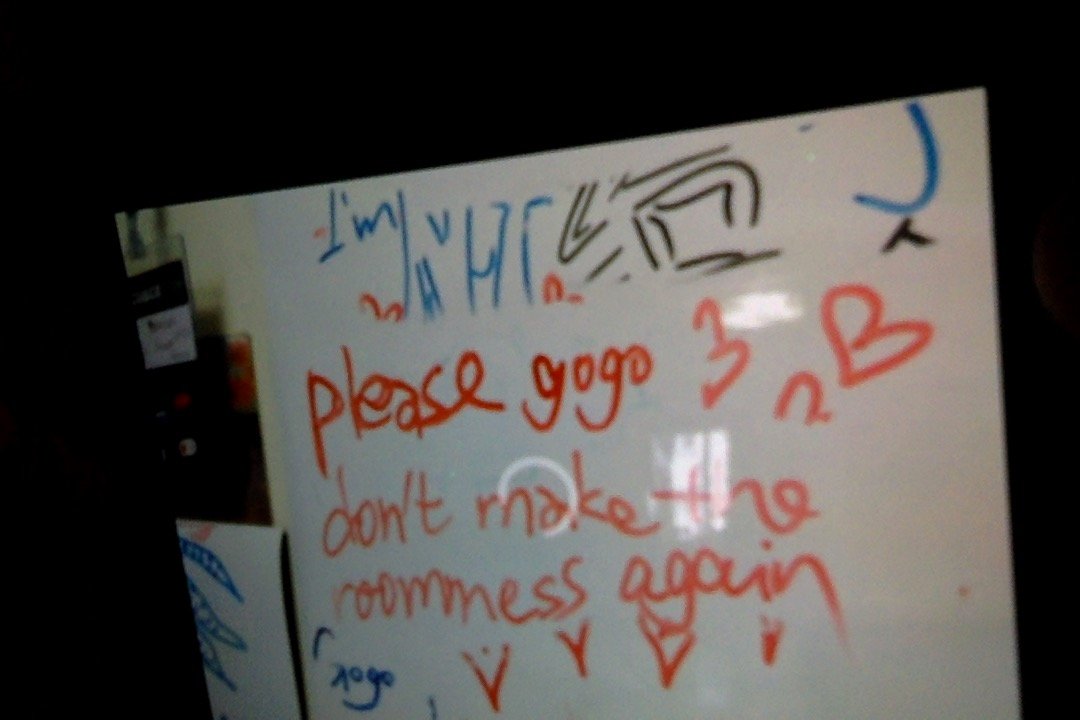 I'm
please gogo 3 B
don't make the
roommess again
gogo